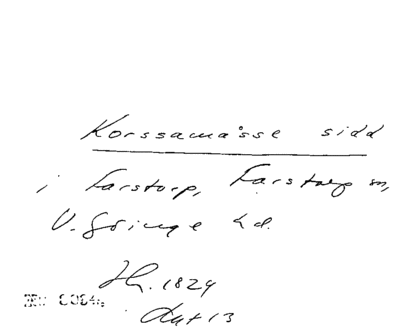 Korssamåsse sidd
i Farstorp, Farstorp sn,
V. Göinge hd.
Jh. 1829
dat 13